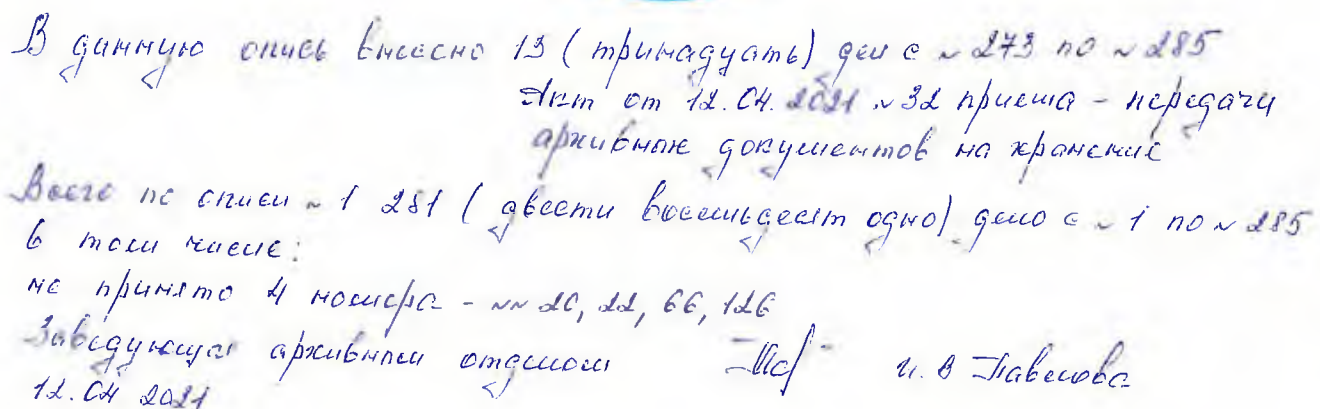 В данную опись внесено 13 (тринадцать) дел с № 273 по № 285
Акт от 12.04.2021 № 32 приема - передачи
архивных документов на хранение
Всего по описи № 1 281 (двести восемьдесят одно) дело с № 1 по № 285
в том числе:
не принято 4 номера - №№ 20, 22, 66, 126
Заведующая архивным отделом И. В Павлова
12.04 2021